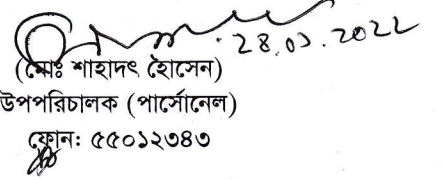 28.01.2022
(মোঃ শাহাদৎ হোসেন)
উপপরিচালক (পার্সোনেল)
ফোন: ৫৫০১২৩৪৩